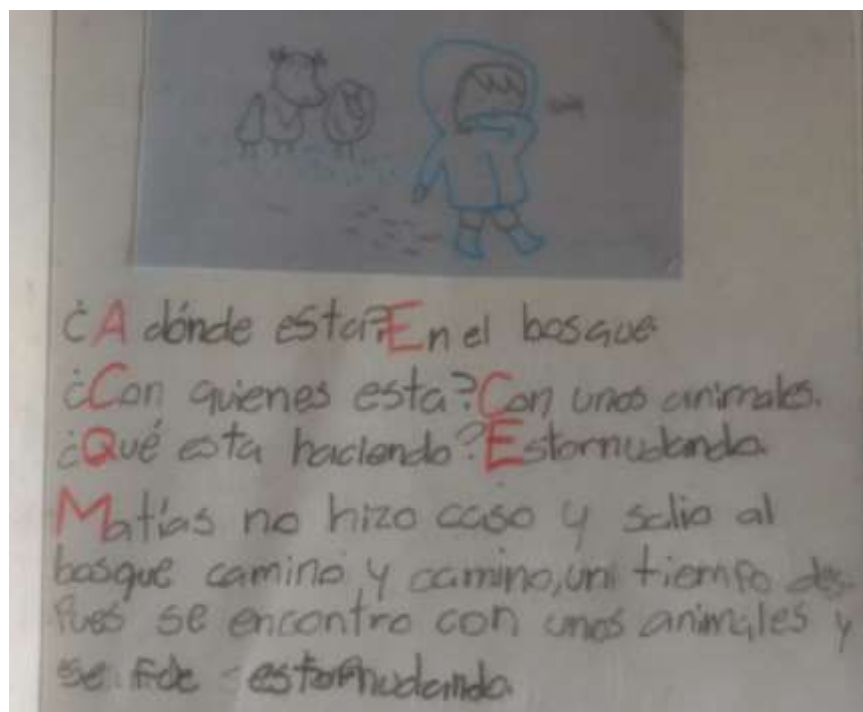 ¿A dónde esta? En el bosque
¿Con quienes esta? Con unos animales.
¿Qué esta haciendo? Estornudando.
Matías no hizo caso y salio al
bosque camino y camino, un tiempo des-
pues se encontro con unos animales y
se fue estornudando.